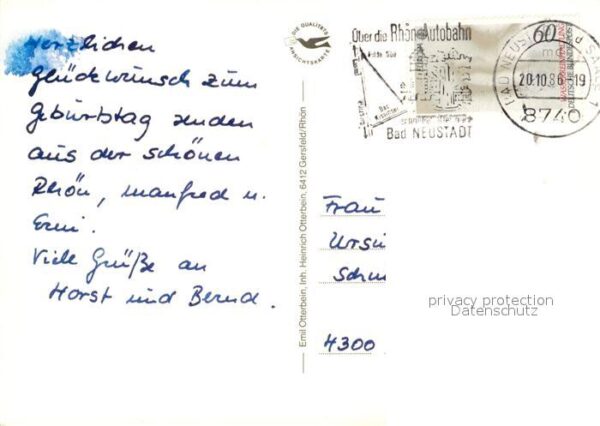 Herzlichen
Glückwunsch zum
Geburtstag senden
aus der schönen
Rhön, Manfred u.
Erni.
Viele Grüße an
Horst und Bernd.
DIE QUALITÄTS
ANSICHTSKARTE
Emil Otterbein, Inh. Heinrich Otterbein, 6412 Gersfeld/Rhön
Über die Rhön-Autobahn
Bad NEUSTADT
60
DEUTSCHE BUNDESPOST
BAD NEUSTADT SAALE 1
20.10.86-19
8740
Frau
Ursu
Schm
4300
privacy protection
Datenschutz